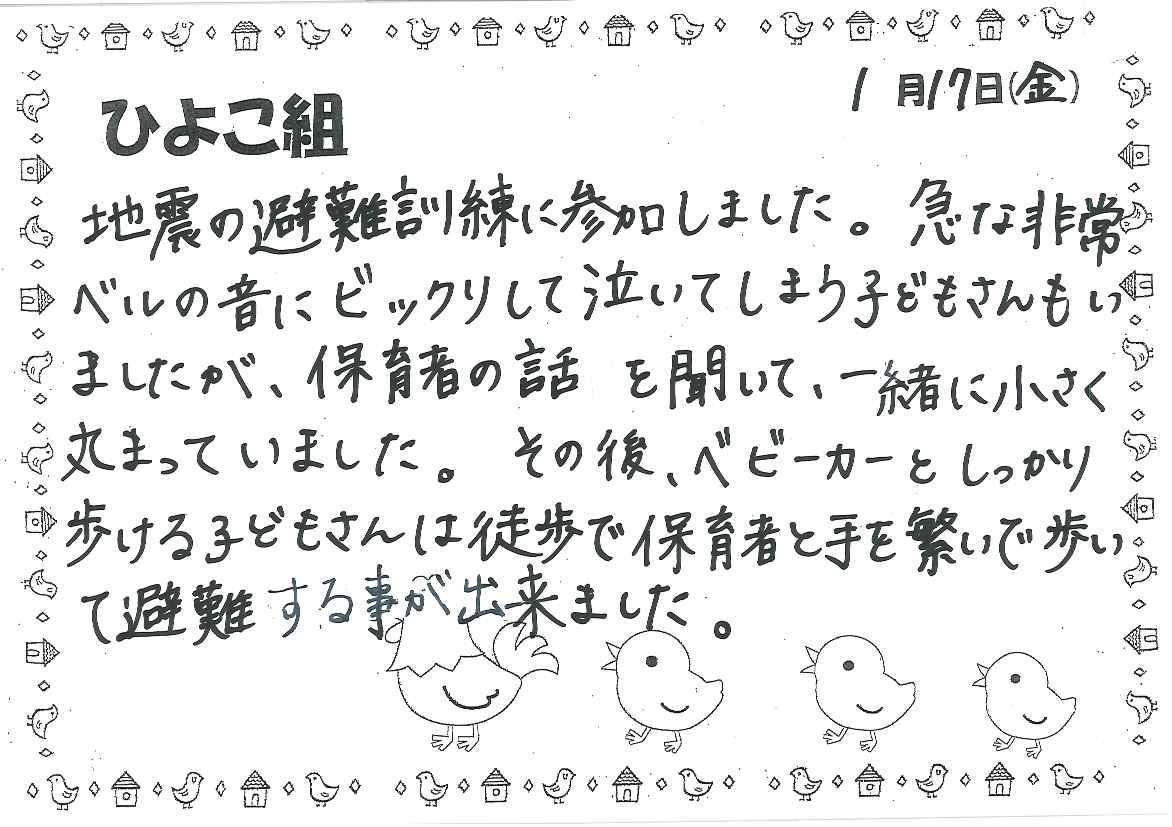 1月17日(金)
ひよこ組
地震の避難訓練に参加しました。急な非常
ベルの音にビックリして泣いてしまう子どもさんもい
ましたが、保育者の話 を聞いて、一緒に小さく
丸まっていました。その後、ベビーカーとしっかり
歩ける子どもさんは徒歩で保育者と手を繋いで歩い
て避難する事が出来ました。